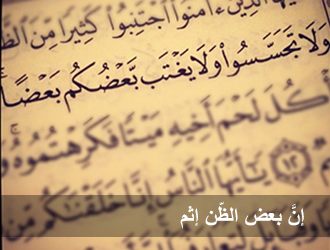 ٱلَّذِينَ ءَامَنُوا۟ ٱجْتَنِبُوا۟ كَثِيرًا مِّنَ
وَلَا تَجَسَّسُوا۟ وَلَا يَغْتَب بَّعْضُكُم بَعْضًا ۚ
لَحْمَ أَخِيهِ مَيْتًا فَكَرِهْتُمُوهُ ۚ
١٢ يَٰٓأَيُّهَا ٱلنَّاسُ إِنَّا خَلَقْنَٰكُم مِّن
إنَّ بعض الظّن إثم